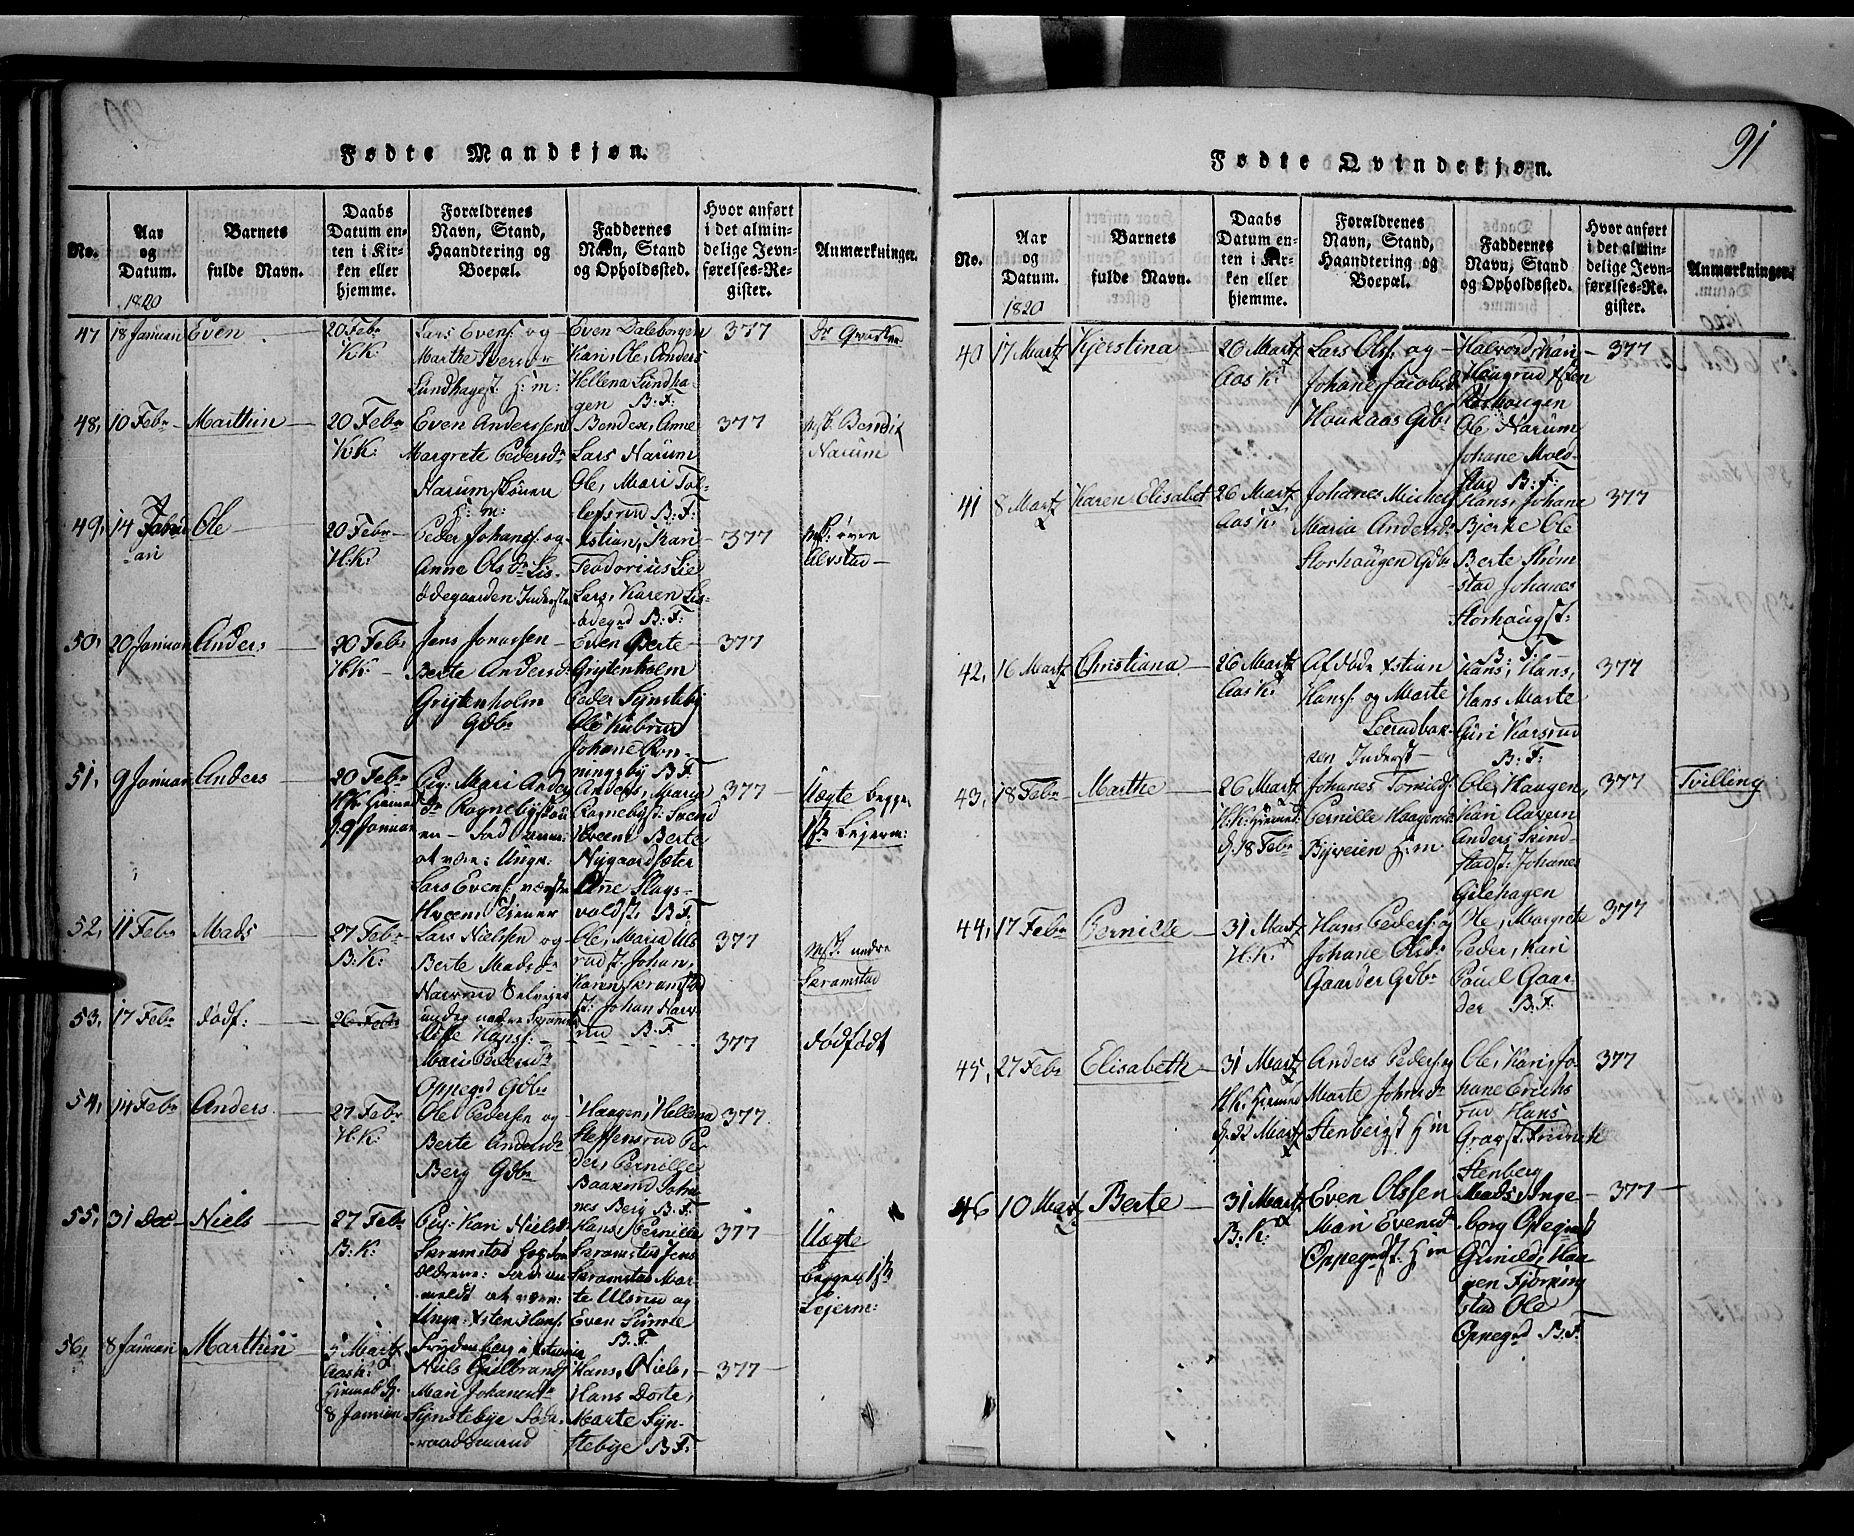 91
Fødte Mandkjøn.
No.
Aar
og
Datum.
1820
Barnets
fulde Navn.
Daabs
Datum en-
ten i Kir-
ken eller
hjemme.
Forældrenes
Navn, Stand,
Haandtering og
Boepæl.
Faddernes
Navn, Stand
og Opholdssted.
Hvor anført
i det almin-
delige Jevn-
førelses-Re-
gister.
Anmærkninger.
47
18 Januari
Even
20 Febr
H:K:
Lars Evens: og
Marthe Iversdr
Lundhagest. H:m:
Even Daleborgen
Kari, Ole, Anders
Hellena Lundha-
gen B:F:
377
48,
10 Febr
Marthin
20 Febr
H:K:
Even Anderssen
Margrete Pedersdr
Narumstöuen
H:m:
Benders, Anne
Lars Narum
Ole, Mari Tol-
lefsrud B:F:
377
Bendik
Narum
49,
14 Janu
ari
Ole
20 Febr
H:K:
Peder Johans: og
Anne Ols dr Lis-
ødegaarden Inderste
Xstian, Kari
Teodorius Lie
Lars, Karen Lis-
ødegrd B:F:
377
øvre
Alvstad
50,
20 Januari
Anders
20 Febr
H:K:
Jens Jonassen
Berte Andersd
Gristenholm
Gdbr
Even Berte
Gristenholm
Peder Synsteby
Ole Kubrud
Johane Ron-
ningsby B:F:
377
51,
9 Januari
Anders
20 Febr
H:K: hiemed
d. 9 Januar
Pig: Mari Anders
dr Rognebystöu
en
at være: Ungk:
Lars Evens:
Hveem Tiener
Anders, Maria
Rognebyst: Svend
Hveem Berte
Nygaardsæter
Anne Slags-
voldst. B:F:
377
Uægte begges
1ste Lejerm:
52,
11 Febr
Mads
27 Febr
B:K:
Lars Nielsen og
Berte Madsdr
Narrud Selvejer
under nædre Skramst
Ole, Maria Uls-
rud st. Johan,
Karen Skramstad
st: Johan Narr-
rud B:F:
377
nædre
Skramstad
53,
17 Febr
dødf:
26 Febr
Uffe Hans:
Mari Pedersdr
Oppegrd Gdbr
377
dødfødt
54,
14 Febr
Anders
27 Febr
H:K:
Ole Pedersen og
Berte Andersdr
Berg Gdbr
Haagen, Hellena
Steffensrud Pe-
der, Pernille
Baakind Joha-
nes Berg B:F:
377
55,
31 Det
Niels
27 Febr
B:K:
Pig: Kari Nielsdr
Skramstad
meldt at være:
Ungk: Xsten Hans:
Hans, Pernille
Skramstad Jens
Skramstad Mar-
te Ulsrud og
Even Sunste
B:F:
377
Uægte
begges 1ste
Lejerm:
56,
8 Januari
Marthin
5 Martz
Aask:
hiemed d.
8 Januar
Niels Guldbrands
Mari Johanesdr
Synstebye
Hans, Niels,
Hans Dorte,
Marte Syn-
stebye B:F:
377
Fødte Qvindekjøn.
No.
Aar
og
Datum.
1820
Barnets
fulde Navn.
Daabs
Datum en-
ten i Kir-
ken eller
hjemme.
Forældrenes
Navn, Stand,
Haandtering og
Boepæl.
Faddernes
Navn, Stand
og Opholdssted.
Hvor anført
i det almin-
delige Jevn-
førelses-Re-
gister.
Anmærkninger.
40
17 Martz
Kjerstina
26 Martz
Aas K:
Lars Ols: og
Johane Jacobsd
Houkaas Gdbr
Halvord, Kari
Haagrud Xsten
Storhougen
Ole Narum
Johane Mold-
stad B:F:
377
41
8 Martz
Karen Elisabet
26 Martz
Aas K:
Johanes Michels
Maria Andersdr
Storhaugen Gdbr
Hans, Johane
Bjerke Ole
Berte Strøm-
stad Johanes
Storhaugst:
B:F:
377
42,
16 Martz
Christiana
26 Martz
Aas K:
Afdøde Xstian
Hans: og Marte
Leerudbak-
ken Inderst
Hans, Hans,
Hans Marte
Guri Karsrud
B:F:
377
43,
18 Febr
Marthe
26 Martz
H:K: hiemed
d. 18 Febr
Johanes Tomids:
Pernille Haagensd
Byveien H:m
Ole, Haagen,
Kari Aavern
Anders Skind-
stad st: Johanes
Gilehagen
377
Tvilling
44,
17 Febr
Pernille
31 Martz
H:K:
Hans Peders: og
Johane Olsdr
Gaarder Gdbr
Ole, Margrete
Peder, Kari
Pouel Gaar-
der B:F:
377
45,
27 Febr
Elisabeth
31 Martz
H:K: hiemed
d. 22 Martz
Anders Peders: og
Marte Johnsdr
Stenbergst H:m
Ole, Kari, Jo-
hane Erichs
rud Hans
Gragst. Fridrich
Stenberg
377
46
10 Martz
Berte
31 Martz
B:K:
Even Olssen
Mari Evensd
Oppegrdst. H:m
Mads, Inge-
borg Opegrd
Gunild, Haa-
gen Fjorking
stad Ole
Oppegrd B:F:
377